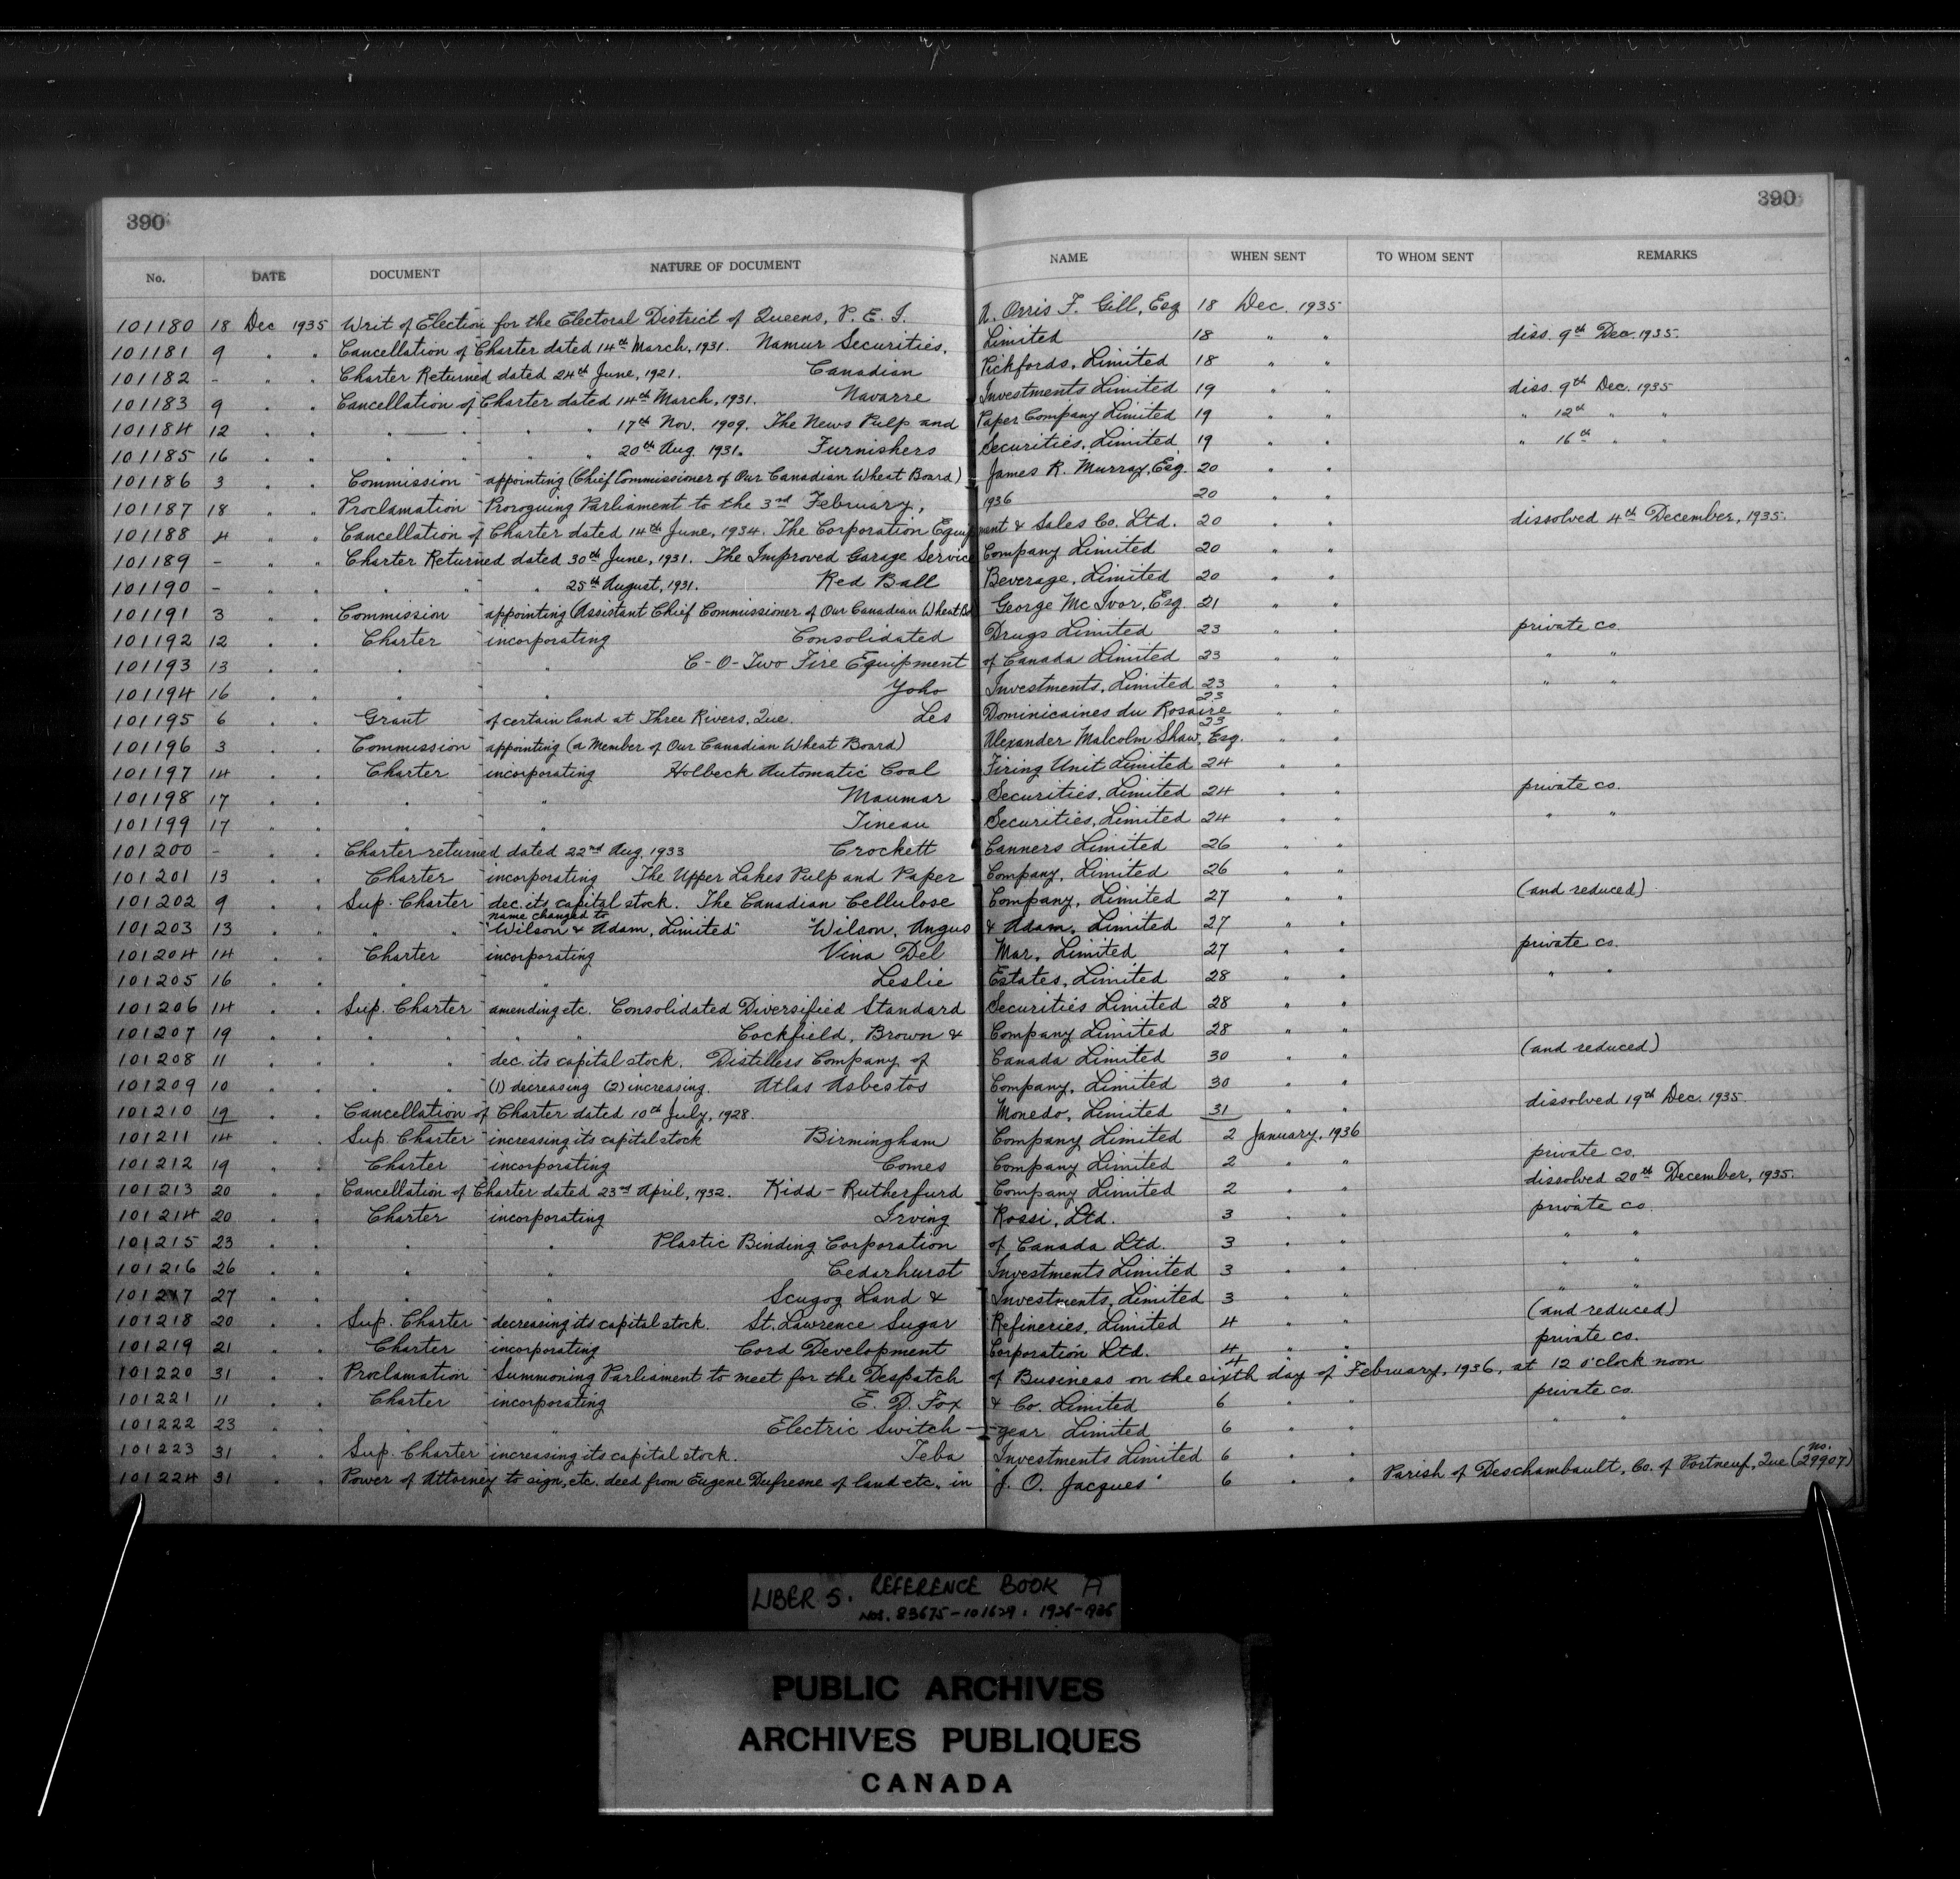 390
390
No. DATE DOCUMENT NATURE OF DOCUMENT NAME WHEN SENT TO WHOM SENT REMARKS
101180 18 Dec 1935 Writ of Election for the Electoral District of Queens, P. E. I. A. Orris F. Gill, Esq 18 Dec. 1935
101181 9 " " Cancellation of Charter dated 14th March, 1931. Namur Securities, Limited 18 " " diss. 9th Dec. 1935.
101182 - " " Charter Returned dated 24th June, 1921. Canadian Pickfords, Limited 18 " "
101183 9 " " Cancellation of Charter dated 14th March, 1931. Navarre Investments Limited 19 " " diss. 9th Dec. 1935
101184 12 " " " " " 17th Nov. 1909. The News Pulp and Paper Company Limited 19 " " " 12th " "
101185 16 " " " " " " 20th Aug. 1931. Furnishers Securities, Limited 19 " " " 16th " "
101186 3 " " Commission appointing (Chief Commissioner of Our Canadian Wheat Board) James R. Murray, Esq. 20 " "
101187 18 " " Proclamation Proroguing Parliament to the 3rd February, 1936 20 " "
101188 4 " " Cancellation of Charter dated 14th June, 1934. The Corporation Equipment & Sales Co. Ltd. 20 " " dissolved 4th December, 1935.
101189 - " " Charter Returned dated 30th June, 1931. The Improved Garage Service Company Limited 20 " "
101190 - " " " " " 25th August, 1931. Red Ball Beverage, Limited 20 " "
101191 3 " " Commission appointing (Assistant Chief Commissioner of Our Canadian Wheat Bd George Mc Ivor, Esq. 21 " "
101192 12 " " Charter incorporating Consolidated Drugs Limited 23 " " private co.
101193 13 " " " " C-O-Two Fire Equipment of Canada Limited 23 " " " "
101194 16 " " " " Yoho Investments, Limited 23 " " " "
101195 6 " " Grant of certain land at Three Rivers, Que. Les Dominicaines du Rosaire 23 " "
101196 3 " " Commission appointing (a Member of Our Canadian Wheat Board) Alexander Malcolm Shaw, Esq. 23 " "
101197 14 " " Charter incorporating Holbeck Automatic Coal Firing Unit Limited 24 " "
101198 17 " " " " Maumar Securities, Limited 24 " " private co.
101199 17 " " " " Tineau Securities, Limited 24 " " " "
101200 - " " Charter returned dated 22nd Aug. 1933 Crockett Canners Limited 26 " "
101201 13 " " Charter incorporating The Upper Lakes Pulp and Paper Company, Limited 26 " "
101202 9 " " Sup. Charter dec. its capital stock. The Canadian Cellulose Company, Limited 27 " " (and reduced)
name changed to
101203 13 " " " " "Wilson & Adam, Limited" "Wilson, Angus & Adam, Limited 27 " "
101204 14 " " Charter incorporating Vina Del Mar, Limited 27 " " private co.
101205 16 " " " " Leslie Estates, Limited 28 " " " "
101206 14 " " Sup. Charter amending etc. Consolidated Diversified Standard Securities Limited 28 " "
101207 19 " " " " " " Cockfield, Brown & Company Limited 28 " "
101208 11 " " " " dec. its capital stock. Distillers Company of Canada Limited 30 " " (and reduced)
101209 10 " " " " (1) decreasing (2) increasing. Atlas Asbestos Company, Limited 30 " "
101210 19 " " Cancellation of Charter dated 10th July, 1928. Monedo, Limited 31 " " dissolved 19th Dec. 1935
101211 14 " " Sup. Charter increasing its capital stock Birmingham Company Limited 2 January, 1936
101212 19 " " Charter incorporating Comes Company Limited 2 " " private co.
101213 20 " " Cancellation of Charter dated 23rd April, 1932. Kidd-Rutherfurd Company Limited 2 " " dissolved 20th December, 1935.
101214 20 " " Charter incorporating Irving Rossi, Ltd. 3 " " private co
101215 23 " " " " Plastic Binding Corporation of Canada Ltd. 3 " " " "
101216 26 " " " " Cedarhurst Investments Limited 3 " " " "
101217 27 " " " " Scugog Land & Investments, Limited 3 " " " "
101218 20 " " Sup. Charter decreasing its capital stock. St. Lawrence Sugar Refineries, Limited 4 " " (and reduced)
101219 21 " " Charter incorporating Cord Development Corporation Ltd. 4 " " private co.
101220 31 " " Proclamation Summoning Parliament to meet for the Despatch of Business on the sixth day of February, 1936, at 12 o'clock noon 4 " "
101221 11 " " Charter incorporating E. D. Fox & Co. Limited 6 " " private co.
101222 23 " " " " Electric Switch-gear Limited 6 " " " "
101223 31 " " Sup. Charter increasing its capital stock. Teba Investments Limited 6 " "
101224 31 " " Power of Attorney to sign, etc. deed from Eugene Dufresne of land etc. in "J. O. Jacques" 6 " " Parish of Deschambault, Co. of Portneuf, Que (no. 29907)
LIBER 5. REFERENCE BOOK A
NOS. 83675-101629. 1926-1936
PUBLIC ARCHIVES
ARCHIVES PUBLIQUES
CANADA